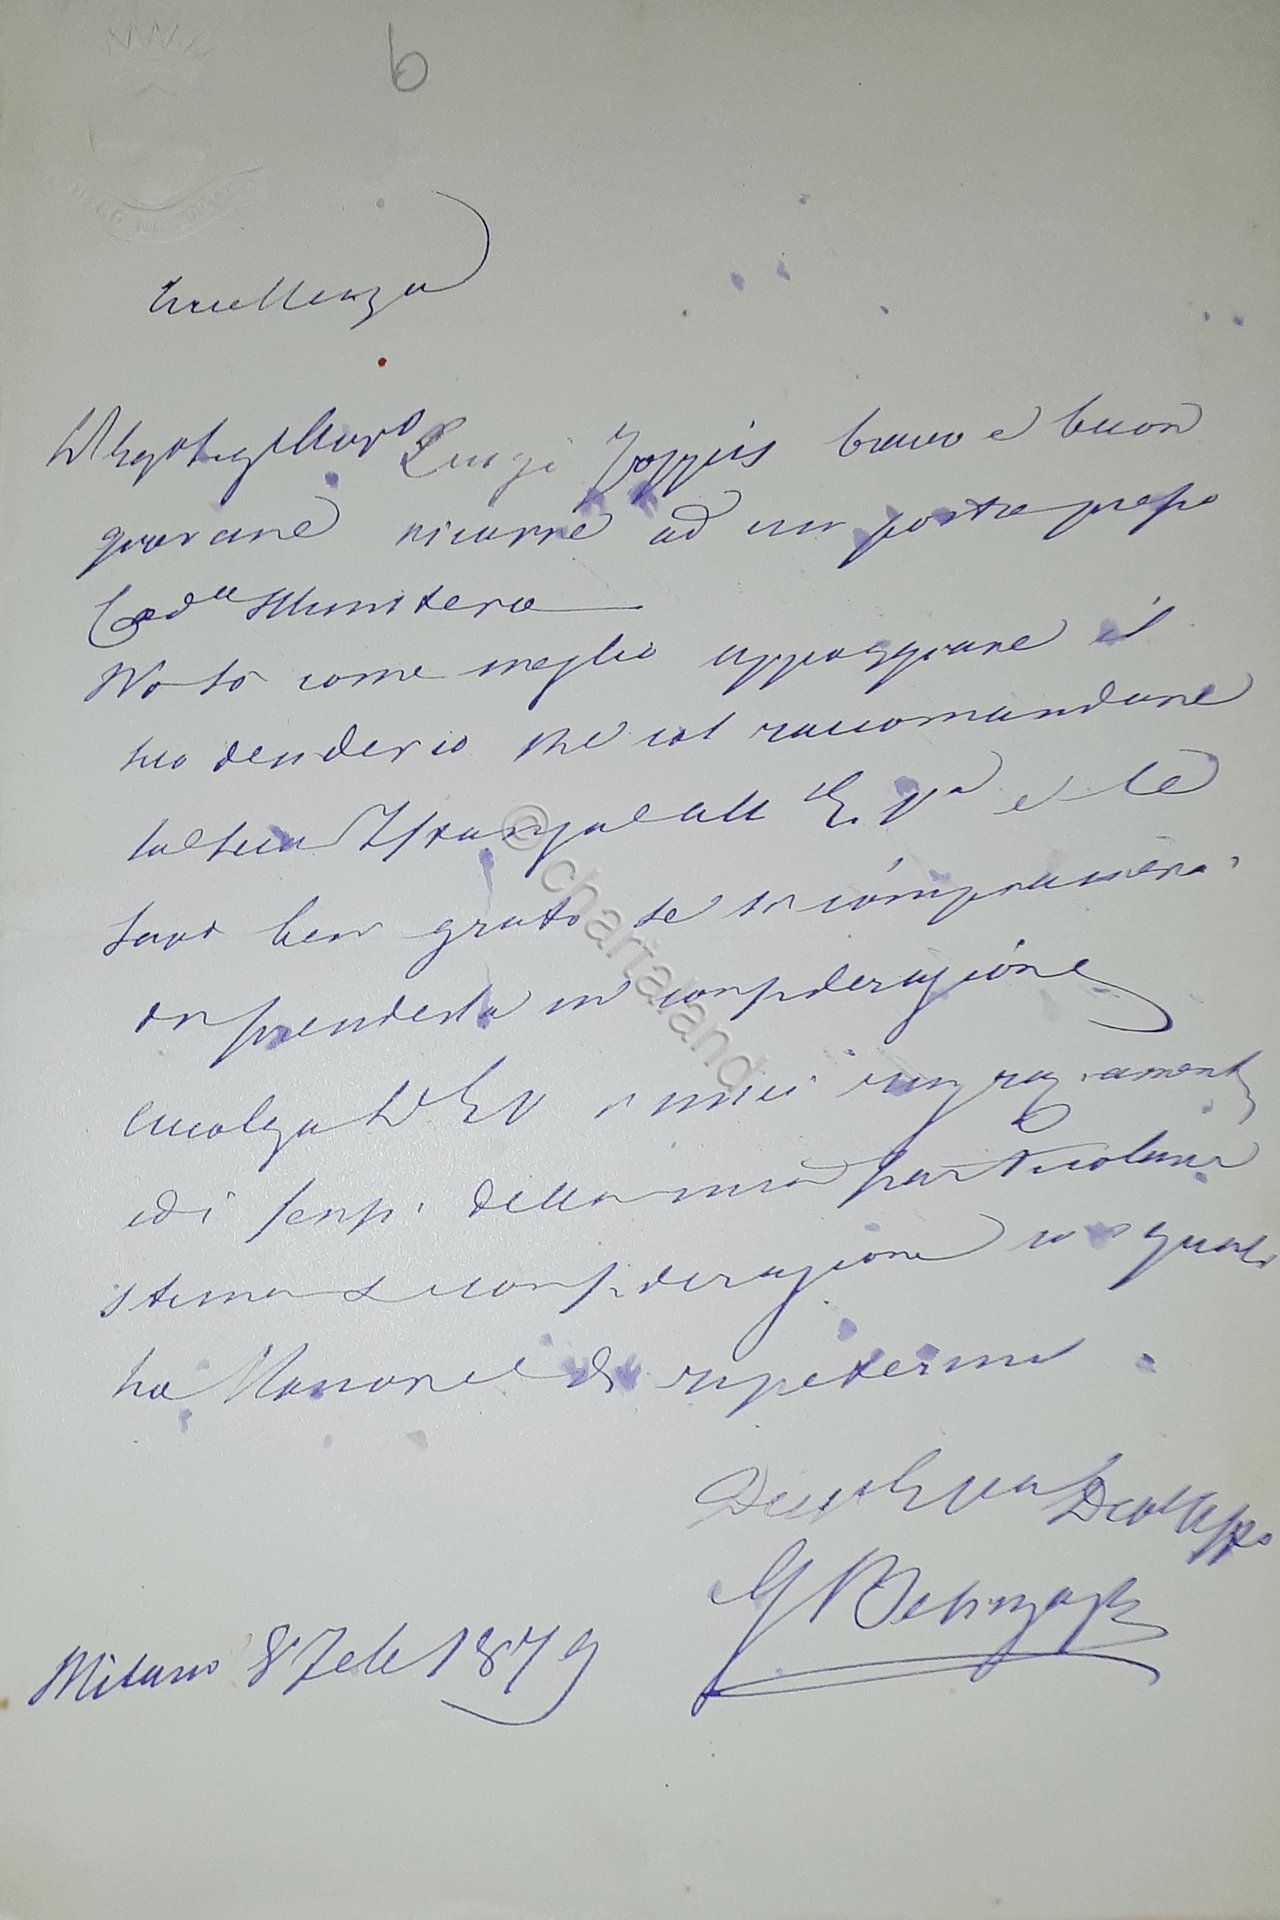 b
Eccellenza
Luigi bravo e buon
giovane ricorre ad un posto presso
Cod.a Ministero
Non so come meglio appoggiare il
suo desiderio che col raccomandare
tal sua alla E. V.a e Le
sarò ben grato se si compiacerà
di prenderla in considerazione
Accolga E V i miei ringraziamenti
ed i sensi della mia particolare
stima e considerazione coi quali
ho l'onore di ripetermi
Dell E Vra
G
Milano 8 Feb 1879
© chartaland